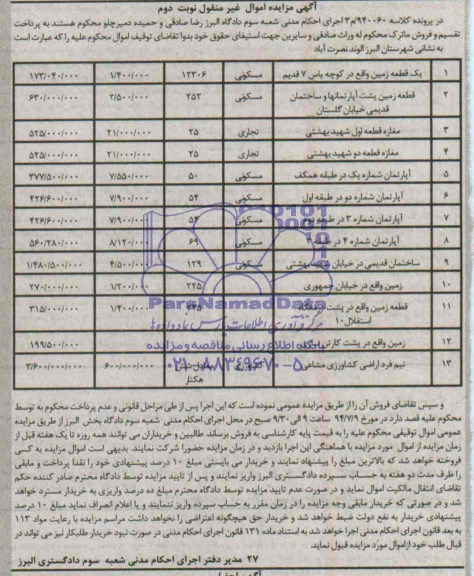 آگهی مزایده اموال غیر منقول نوبت دوم
در پرونده کلاسه ۹۴۰۰۶۰/م۳ اجرای احکام مدنی شعبه سوم دادگاه البرز رضا صادقی و حمیده دمیرچلو محکوم هستند به پرداخت
تقسیم و فروش ماترک محکوم له وراث صادقی و سایرین جهت استیفای حقوق خود بدوا تقاضای توقیف اموال محکوم علیه را که عبارت است
به نشانی شهرستان البرز الوند نصرت آباد
۱ یک قطعه زمین واقع در کوچه یاس ۷ قدیم مسکونی ۱۲۳۰۶ ۱/۴۰۰/۰۰۰ ۱۷۲/۰۴۰/۰۰۰
۲ قطعه زمین پشت آپارتمانها و ساختمان مسکونی ۲۵۲ ۲/۵۰۰/۰۰۰ ۶۳۰/۰۰۰/۰۰۰
قدیمی خیابان گلستان
۳ مغازه قطعه اول شهید بهشتی تجاری ۲۵ ۲۱/۰۰۰/۰۰۰ ۵۲۵/۰۰۰/۰۰۰
۴ مغازه قطعه دو شهید بهشتی تجاری ۲۵ ۲۱/۰۰۰/۰۰۰ ۵۲۵/۰۰۰/۰۰۰
۵ آپارتمان شماره یک در طبقه همکف مسکونی ۵۰ ۷/۵۵۰/۰۰۰ ۳۷۷/۵۰۰/۰۰۰
۶ آپارتمان شماره دو در طبقه اول مسکونی ۵۴ ۷/۹۰۰/۰۰۰ ۴۲۶/۶۰۰/۰۰۰
۷ آپارتمان شماره ۳ در طبقه مسکونی ۵۴ ۷/۹۰۰/۰۰۰ ۴۲۶/۶۰۰/۰۰۰
۸ آپارتمان شماره ۴ در طبقه مسکونی ۶۹ ۸/۱۲۰/۰۰۰ ۵۶۰/۲۸۰/۰۰۰
۹ ساختمان قدیمی در خیابان بهشتی مسکونی ۱۲۹ ۱/۴۸۰/۵۰۰/۰۰۰
۱۰ زمین واقع در خیابان جمهوری ۲۲۵ ۱/۲۰۰/۰۰۰ ۲۷۰/۰۰۰/۰۰۰
۱۱ قطعه زمین واقع در پشت ۱/۴۰۰/۰۰۰ ۳۱۵/۰۰۰/۰۰۰
استقلال ۱۰
۱۲ زمین واقع در پشت ۱۹۹/۵۰۰/۰۰۰
۱۳ نیم فرد اراضی کشاورزی مشاعی ۶۰۰/۰۰۰/۰۰۰ ۳/۶۰۰/۰۰۰/۰۰۰
هکتار
ParsNamadData
پایگاه اطلاع رسانی مناقصه و مزایده
۰۲۱-۸۸۳۴۹۶۷۰-۵
و سپس تقاضای فروش آن را از طریق مزایده عمومی نموده است که این اجرا پس از طی مراحل قانونی و عدم پرداخت محکوم به توسط
محکوم علیه قصد دارد در مورخ ۹۴/۷/۹ ساعت ۹ الی ۹/۳۰ صبح در محل اجرای احکام مدنی شعبه سوم دادگاه بخش البرز از طریق مزایده
عمومی اموال توقیفی محکوم علیه را به قیمت پایه کارشناسی به فروش برساند. طالبین و خریداران می توانند همه روزه تا یک هفته قبل از
زمان مزایده از اموال مورد مزایده با هماهنگی این اجرا بازدید و در زمان مزایده حضورا شرکت نمایند. بدیهی است اموال مزایده به کسی
فروخته خواهد شد که بالاترین مبلغ را پیشنهاد نمایند و خریدار می بایستی مبلغ ۱۰ درصد پیشنهادی خود را نقدا پرداخت و مابقی
را ظرف مدت دو هفته به حساب سپرده دادگستری البرز واریز نمایند و پس از تایید مزایده توسط دادگاه محترم صادر کننده حکم
تقاضای انتقال مالکیت اموال نماید و در صورت عدم تایید مزایده توسط دادگاه محترم مبلغ ده درصد واریزی به خریدار مسترد خواهد
شد و در صورتی که خریدار مابقی وجه مزایده را در زمان مقرر به حساب سپرده واریز ننمایند و یا اعلام انصراف نماید مبلغ ۱۰ درصد
پیشنهادی خریدار به نفع دولت ضبط خواهد شد و خریدار حق هیچگونه اعتراضی را نخواهد داشت مراسم مزایده با رعایت مواد ۱۱۳
به بعد قانون اجرای احکام مدنی اجرا خواهد شد به استناد ماده ۱۳۱ قانون اجرای احکام مدنی در صورت نبود خریدار طلبکار نیز می تواند در
قبال طلب خود از اموال مورد مزایده قبول نماید.
۲۷ مدیر دفتر اجرای احکام مدنی شعبه سوم دادگستری البرز